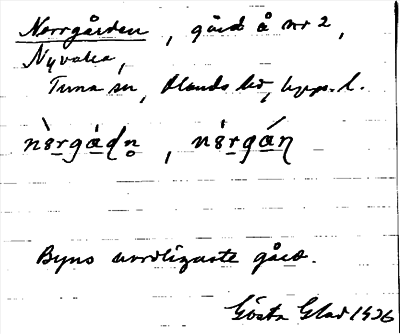 Norrgården, gård å nr 2,
Nyvalla,
Tuna sn, Olands hd, Upps. l.
nòrgåḍn̥, nòrgáṇ
Byns nordligaste gård.
Gösta Glad 1926